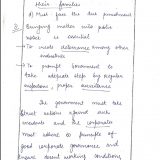 their families
d) Must face the due punishment
Bringing matters into public
notice is essential
→ To create deterrence among other
industries
→ To prompt Government to
take adequate step by regular
inspections, proper surveillance
The government must take
strict actions against such
incidents and the corporate
must adhere to principle of
good corporate governance and
ensure decent working conditions